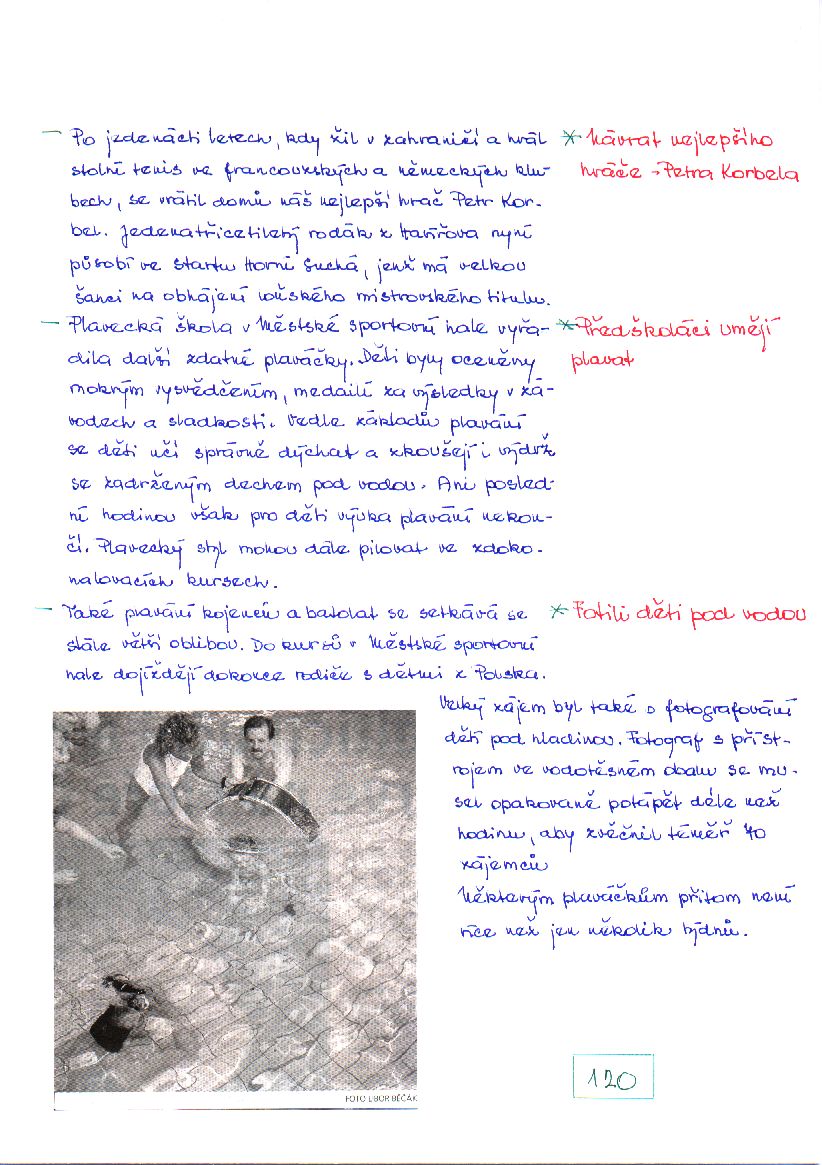 – Po jedenácti letech, kdy žil v zahraničí a hrál
stolní tenis ve francouzských a německých klu-
bech, se vrátil domů náš nejlepší hráč Petr Kor-
bel. Jedenatřicetiletý rodák z Havířova nyní
působí ve Startu Horní Suchá, jenž má velkou
šanci na obhájení loňského mistrovského titulu.
* Návrat nejlepšího
hráče - Petra Korbela
– Plavecká škola v Městské sportovní hale vyřa-
dila další zdatné plaváčky. Děti byly oceněny
mokrým vysvědčením, medailí za výsledky v zá-
vodech a sladkostí. Vedle základů plavání
se děti učí správně dýchat a zkoušejí i výdrž
se zadrženým dechem pod vodou. Ani posled-
ní hodinou však pro děti výuka plavání nekon-
čí. Plavecký styl mohou dále pilovat ve zdoko-
nalovacích kursech.
* Předškoláci umějí
plavat
– Také plavání kojenců a batolat se setkává se
stále větší oblibou. Do kursů v Městské sportovní
hale dojíždějí dokonce rodiče s dětmi z Polska.
* Fotili děti pod vodou
Velký zájem byl také o fotografování
dětí pod hladinou. Fotograf s příst-
rojem ve vodotěsném obalu se mu-
sel opakovaně potápět déle než
hodinu, aby zvěčnil téměř 40
zájemců
Některým plaváčkům přitom není
více než jen několik týdnů.
FOTO LIBOR BĚČÁK
120